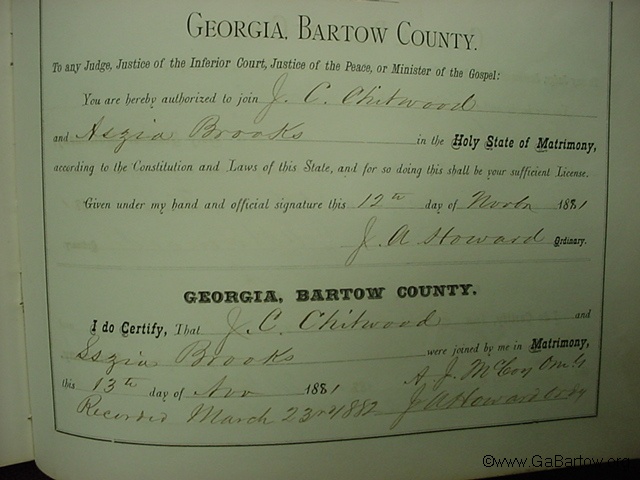 GEORGIA, BARTOW COUNTY.
To any Judge, Justice of the Inferior Court, Justice of the Peace, or Minister of the Gospel:
You are hereby authorized to join J. C. Chitwood
and Aszia Brooks in the Holy State of Matrimony,
according to the Constitution and Laws of this State, and for so doing this shall be your sufficient License.
Given under my hand and official signature this 12th day of Novbr 1881
J. A Howard Ordinary.
GEORGIA, BARTOW COUNTY.
I do Certify, That J. C. Chitwood and
Aszia Brooks were joined by me in Matrimony,
this 13th day of Nov 1881 A J. McCoy
Recorded March 23rd 1882 J A Howard Ordy
©www.GaBartow.org